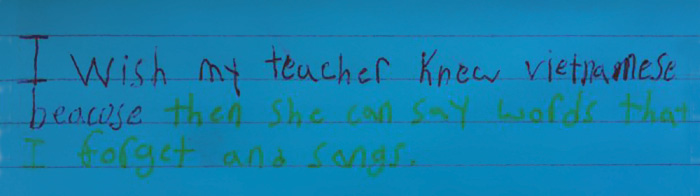 I Wish my teacher Knew vietnamese
beacuse then she can say words that
I forget and songs.